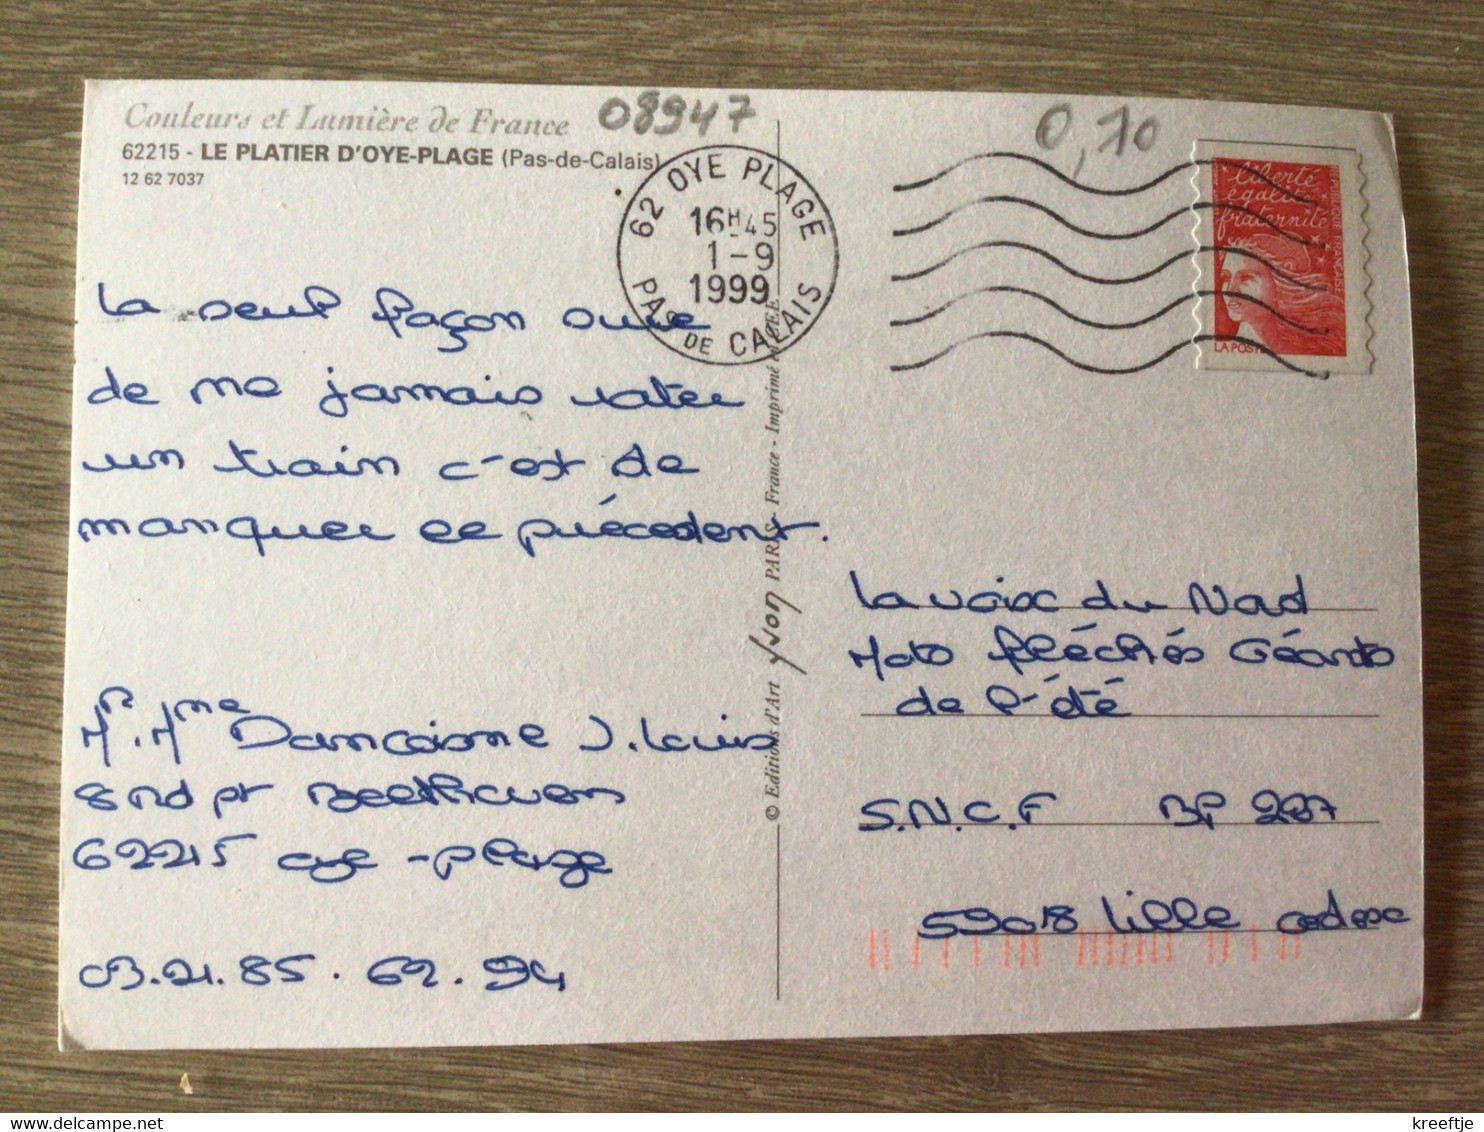 Couleurs et Lumière de France
62215 - LE PLATIER D'OYE-PLAGE (Pas-de-Calais)
12 62 7037
08947
0,10
62 OYE PLAGE
16H45
1-9
1999
PAS DE CALAIS
liberté
égalité
fraternité
RÉPUBLIQUE FRANÇAISE
LA POSTE
La seul façon sure
de ne jamais rater
un train c'est de
manquer le précédent.
Mr. Mme Dancoisne J. Louis
8 rd pt Beethoven
62215 oye-plage
03.21.85.62.94
© Editions d'Art Yvon PARIS - France - Imprimé en CEE
La voix du Nord
Moto fléchés Géants
de l'été
S.N.C.F BP 287
59018 Lille cedex
kreeftje